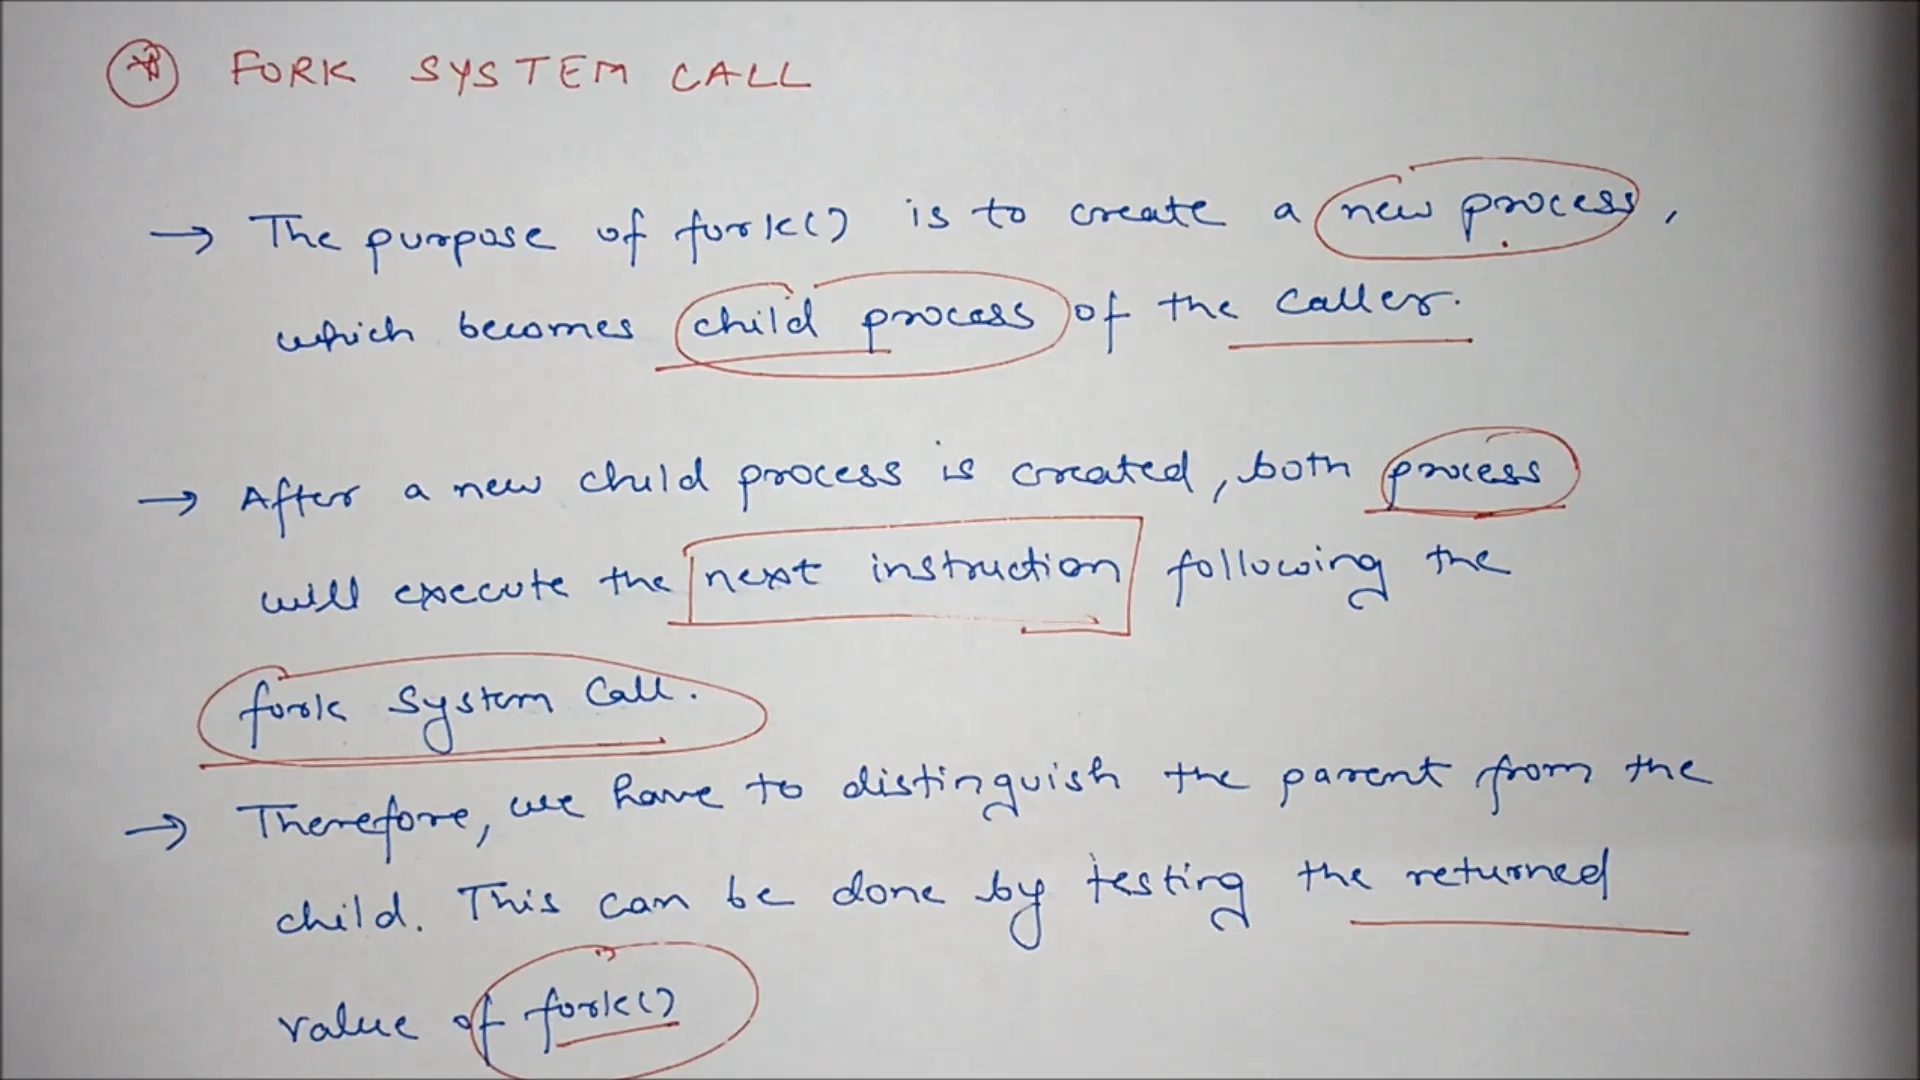 FORK SYSTEM CALL
→ The purpose of fork() is to create a new process,
which becomes child process of the caller.
→ After a new child process is created, both process
will execute the next instruction following the
fork system call.
→ Therefore, we have to distinguish the parent from the
child. This can be done by testing the returned
value of fork()